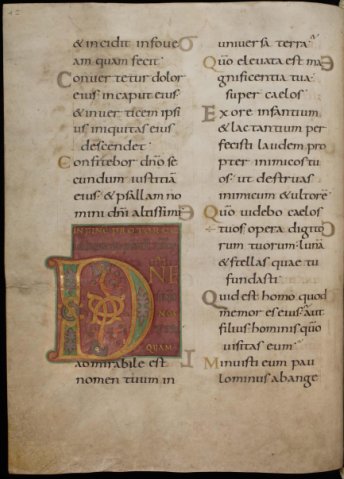 & incidit in fove
am quam fecit
Convertetur dolor
eius in caput eius
& in verticem ipsi
us iniquitas eius
descendet
Confitebor dño se
cundum iustitiā
eius & psallam no
mini dñi altissimi
IN FINE PRO TORC
D
NE
NO
QUAM
admirabile est
nomen tuum in
universa terra
Qūo elevata est ma
gnificentia tua
super caelos
Ex ore infantium
& lactantium per
fecisti laudem pro
pter inimicos tu
os ut destruas
inimicum & ultorē
Qūo videbo caelos
tuos opera digito
rum tuorum lunā
& stellas quae tu
fundasti
Quid est homo quod
memor es eius aut
filius hominis qūo
visitas eum
Minuisti eum pau
lo minus ab ange